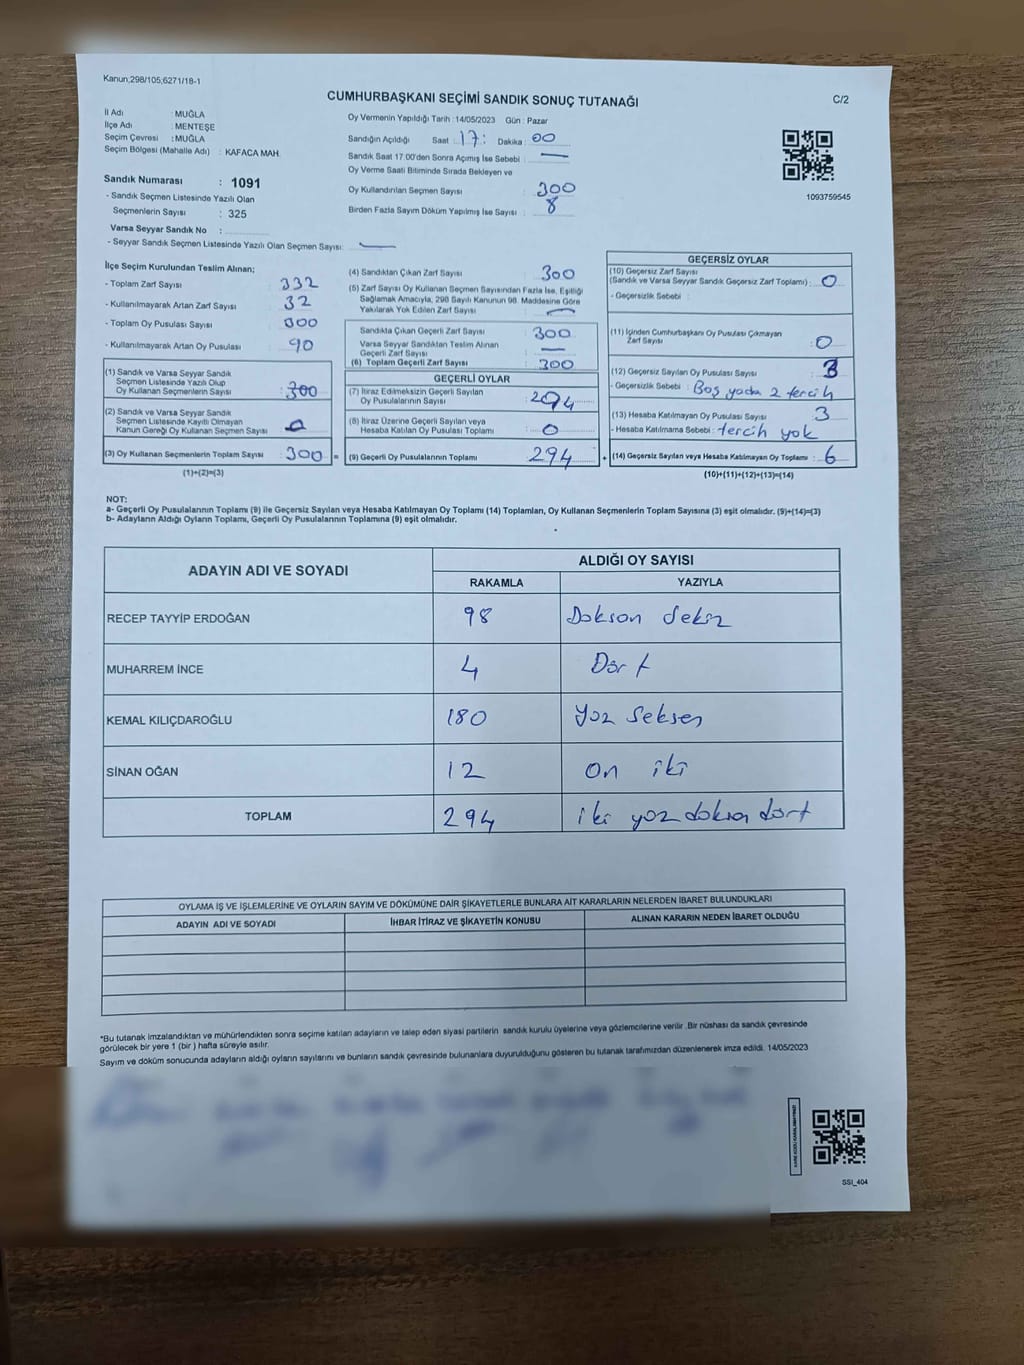 Kanun;298/105,6271/18-1
CUMHURBAŞKANI SEÇİMİ SANDIK SONUÇ TUTANAĞI
C/2
İl Adı : MUĞLA
İlçe Adı : MENTEŞE
Seçim Çevresi : MUĞLA
Seçim Bölgesi (Mahalle Adı) : KAFACA MAH.
Sandık Numarası : 1091
- Sandık Seçmen Listesinde Yazılı Olan
Seçmenlerin Sayısı : 325
Varsa Seyyar Sandık No :
- Seyyar Sandık Seçmen Listesinde Yazılı Olan Seçmen Sayısı: —
Oy Vermenin Yapıldığı Tarih : 14/05/2023 Gün : Pazar
Sandığın Açıldığı Saat : 17: Dakika : 00
Sandık Saat 17:00'den Sonra Açımış İse Sebebi : —
Oy Verme Saati Bitiminde Sırada Bekleyen ve
Oy Kullandırılan Seçmen Sayısı : 300
Birden Fazla Sayım Döküm Yapılmış İse Sayısı : 8
1093759545
İlçe Seçim Kurulundan Teslim Alınan;
- Toplam Zarf Sayısı : 332
- Kullanılmayarak Artan Zarf Sayısı : 32
- Toplam Oy Pusulası Sayısı :
- Kullanılmayarak Artan Oy Pusulası : 90
(1) Sandık ve Varsa Seyyar Sandık
Seçmen Listesinde Yazılı Olup
Oy Kullanan Seçmenlerin Sayısı : 300
(2) Sandık ve Varsa Seyyar Sandık
Seçmen Listesinde Kayıtlı Olmayan
Kanun Gereği Oy Kullanan Seçmen Sayısı : 0
(3) Oy Kullanan Seçmenlerin Toplam Sayısı : 300
(1)+(2)=(3)
(4) Sandıktan Çıkan Zarf Sayısı : 300
(5) Zarf Sayısı Oy Kullanan Seçmen Sayısından Fazla İse, Eşitliği
Sağlamak Amacıyla, 298 Sayılı Kanunun 98. Maddesine Göre
Yakılarak Yok Edilen Zarf Sayısı : —
Sandıkta Çıkan Geçerli Zarf Sayısı : 300
Varsa Seyyar Sandıktan Teslim Alınan
Geçerli Zarf Sayısı : —
(6) Toplam Geçerli Zarf Sayısı : 300
GEÇERLİ OYLAR
(7) İtiraz Edilmeksizin Geçerli Sayılan
Oy Pusulalarının Sayısı : 294
(8) İtiraz Üzerine Geçerli Sayılan veya
Hesaba Katılan Oy Pusulası Toplamı : 0
= (9) Geçerli Oy Pusulalarının Toplamı : 294
GEÇERSİZ OYLAR
(10) Geçersiz Zarf Sayısı
(Sandık ve Varsa Seyyar Sandık Geçersiz Zarf Toplamı) : 0
- Geçersizlik Sebebi :
(11) İçinden Cumhurbaşkanı Oy Pusulası Çıkmayan
Zarf Sayısı : 0
(12) Geçersiz Sayılan Oy Pusulası Sayısı : 3
- Geçersizlik Sebebi : Boş yada 2 tercih
(13) Hesaba Katılmayan Oy Pusulası Sayısı : 3
- Hesaba Katılmama Sebebi : tercih yok
+ (14) Geçersiz Sayılan veya Hesaba Katılmayan Oy Toplamı : 6
(10)+(11)+(12)+(13)=(14)
NOT:
a- Geçerli Oy Pusulalarının Toplamı (9) ile Geçersiz Sayılan veya Hesaba Katılmayan Oy Toplamı (14) Toplamları, Oy Kullanan Seçmenlerin Toplam Sayısına (3) eşit olmalıdır. (9)+(14)=(3)
b- Adayların Aldığı Oyların Toplamı, Geçerli Oy Pusulalarının Toplamına (9) eşit olmalıdır.
ADAYIN ADI VE SOYADI
ALDIĞI OY SAYISI
RAKAMLA YAZIYLA
RECEP TAYYİP ERDOĞAN 98 Dokson Sekiz
MUHARREM İNCE 4 Dört
KEMAL KILIÇDAROĞLU 180 Yüz Seksen
SİNAN OĞAN 12 On iki
TOPLAM 294 iki yüz doksan dört
OYLAMA İŞ VE İŞLEMLERİNE VE OYLARIN SAYIM VE DÖKÜMÜNE DAİR ŞİKAYETLERLE BUNLARA AİT KARARLARIN NELERDEN İBARET BULUNDUKLARI
ADAYIN ADI VE SOYADI İHBAR İTİRAZ VE ŞİKAYETİN KONUSU ALINAN KARARIN NEDEN İBARET OLDUĞU
*Bu tutanak imzalandıktan ve mühürlendikten sonra seçime katılan adayların ve talep eden siyasi partilerin sandık kurulu üyelerine veya gözlemcilerine verilir. Bir nüshası da sandık çevresinde
görülecek bir yere 1 (bir ) hafta süreyle asılır.
Sayım ve döküm sonucunda adayların aldığı oyların sayılarını ve bunların sandık çevresinde bulunanlara duyurulduğunu gösteren bu tutanak tarafımızdan düzenlenerek imza edildi. 14/05/2023
SSI_404